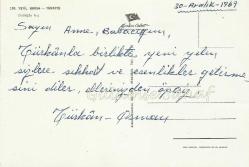 30-Aralık-1969
Sayın Anne, Babacığım,
Türkânla birlikte yeni yılın
sizlere sıhhat ve esenlikler getirme-
sini diler, ellerinizden öperiz.
Türkân - Osman